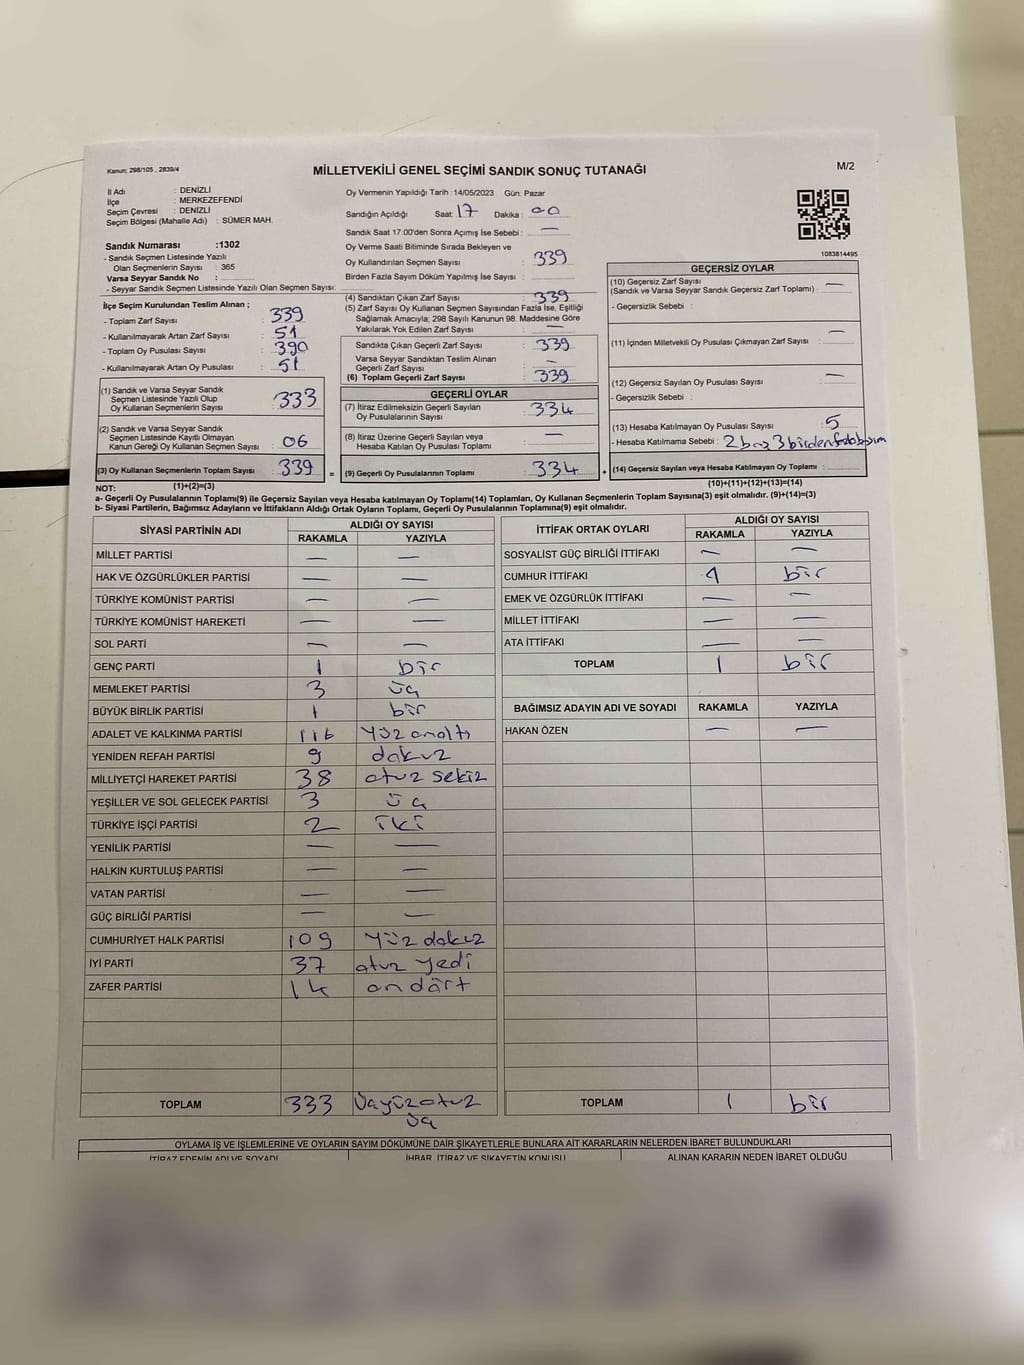 Kanun; 298/105 , 2839/4
MİLLETVEKİLİ GENEL SEÇİMİ SANDIK SONUÇ TUTANAĞI
M/2
İl Adı : DENİZLİ
İlçe : MERKEZEFENDİ
Seçim Çevresi : DENİZLİ
Seçim Bölgesi (Mahalle Adı) : SÜMER MAH.
Sandık Numarası :1302
- Sandık Seçmen Listesinde Yazılı
Olan Seçmenlerin Sayısı : 365
Varsa Seyyar Sandık No :
- Seyyar Sandık Seçmen Listesinde Yazılı Olan Seçmen Sayısı:
İlçe Seçim Kurulundan Teslim Alınan ;
- Toplam Zarf Sayısı : 339
- Kullanılmayarak Artan Zarf Sayısı : 51
- Toplam Oy Pusulası Sayısı : 390
- Kullanılmayarak Artan Oy Pusulası : 51
(1) Sandık ve Varsa Seyyar Sandık
Seçmen Listesinde Yazılı Olup
Oy Kullanan Seçmenlerin Sayısı : 333
(2) Sandık ve Varsa Seyyar Sandık
Seçmen Listesinde Kayıtlı Olmayan
Kanun Gereği Oy Kullanan Seçmen Sayısı : 06
(3) Oy Kullanan Seçmenlerin Toplam Sayısı : 339
(1)+(2)=(3)
Oy Vermenin Yapıldığı Tarih :14/05/2023 Gün: Pazar
Sandığın Açıldığı Saat: 17 Dakika : 00
Sandık Saat 17:00'den Sonra Açımış İse Sebebi : —
Oy Verme Saati Bitiminde Sırada Bekleyen ve
Oy Kullandırılan Seçmen Sayısı : 339
Birden Fazla Sayım Döküm Yapılmış İse Sayısı :
(4) Sandıktan Çıkan Zarf Sayısı : 339
(5) Zarf Sayısı Oy Kullanan Seçmen Sayısından Fazla İse, Eşitliği
Sağlamak Amacıyla, 298 Sayılı Kanunun 98. Maddesine Göre
Yakılarak Yok Edilen Zarf Sayısı : —
Sandıkta Çıkan Geçerli Zarf Sayısı : 339
Varsa Seyyar Sandıktan Teslim Alınan
Geçerli Zarf Sayısı : —
(6) Toplam Geçerli Zarf Sayısı : 339
GEÇERLİ OYLAR
(7) İtiraz Edilmeksizin Geçerli Sayılan
Oy Pusulalarının Sayısı : 334
(8) İtiraz Üzerine Geçerli Sayılan veya
Hesaba Katılan Oy Pusulası Sayısı : —
= (9) Geçerli Oy Pusulalarının Toplamı : 334 +
1083814495
GEÇERSİZ OYLAR
(10) Geçersiz Zarf Sayısı
(Sandık ve Varsa Seyyar Sandık Geçersiz Zarf Toplamı) : —
- Geçersizlik Sebebi :
(11) İçinden Milletvekili Oy Pusulası Çıkmayan Zarf Sayısı : —
(12) Geçersiz Sayılan Oy Pusulası Sayısı : —
- Geçersizlik Sebebi :
(13) Hesaba Katılmayan Oy Pusulası Sayısı : 5
- Hesaba Katılmama Sebebi : 2 boş 3 birden
(14) Geçersiz Sayılan veya Hesaba Katılmayan Oy Toplamı :
(10)+(11)+(12)+(13)=(14)
NOT:
a- Geçerli Oy Pusulalarının Toplamı(9) ile Geçersiz Sayılan veya Hesaba katılmayan Oy Toplamı(14) Toplamları, Oy Kullanan Seçmenlerin Toplam Sayısına(3) eşit olmalıdır. (9)+(14)=(3)
b- Siyasi Partilerin, Bağımsız Adayların ve İttifakların Aldığı Ortak Oyların Toplamı, Geçerli Oy Pusulalarının Toplamına(9) eşit olmalıdır.
SİYASİ PARTİNİN ADI ALDIĞI OY SAYISI
RAKAMLA YAZIYLA
MİLLET PARTİSİ — —
HAK VE ÖZGÜRLÜKLER PARTİSİ — —
TÜRKİYE KOMÜNİST PARTİSİ — —
TÜRKİYE KOMÜNİST HAREKETİ — —
SOL PARTİ — —
GENÇ PARTİ 1 bir
MEMLEKET PARTİSİ 3 üç
BÜYÜK BİRLİK PARTİSİ 1 bir
ADALET VE KALKINMA PARTİSİ 116 Yüz onaltı
YENİDEN REFAH PARTİSİ 9 dokuz
MİLLİYETÇİ HAREKET PARTİSİ 38 otuz sekiz
YEŞİLLER VE SOL GELECEK PARTİSİ 3 üç
TÜRKİYE İŞÇİ PARTİSİ 2 iki
YENİLİK PARTİSİ — —
HALKIN KURTULUŞ PARTİSİ — —
VATAN PARTİSİ — —
GÜÇ BİRLİĞİ PARTİSİ — —
CUMHURİYET HALK PARTİSİ 109 Yüz dokuz
İYİ PARTİ 37 otuz yedi
ZAFER PARTİSİ 14 ondört
TOPLAM 333 Üçyüzotuz
üç
İTTİFAK ORTAK OYLARI ALDIĞI OY SAYISI
RAKAMLA YAZIYLA
SOSYALİST GÜÇ BİRLİĞİ İTTİFAKI — —
CUMHUR İTTİFAKI 1 bir
EMEK VE ÖZGÜRLÜK İTTİFAKI — —
MİLLET İTTİFAKI — —
ATA İTTİFAKI — —
TOPLAM 1 bir
BAĞIMSIZ ADAYIN ADI VE SOYADI RAKAMLA YAZIYLA
HAKAN ÖZEN — —
TOPLAM 1 bir
OYLAMA İŞ VE İŞLEMLERİNE VE OYLARIN SAYIM DÖKÜMÜNE DAİR ŞİKAYETLERLE BUNLARA AİT KARARLARIN NELERDEN İBARET BULUNDUKLARI
İTİRAZ EDENİN ADI VE SOYADI İHBAR, İTİRAZ VE ŞİKAYETİN KONUSU ALINAN KARARIN NEDEN İBARET OLDUĞU